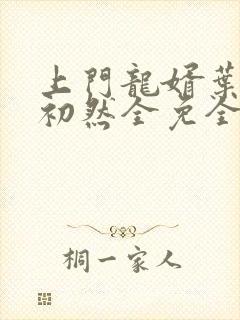 上門龍婿葉
初然全免全
桐一家人